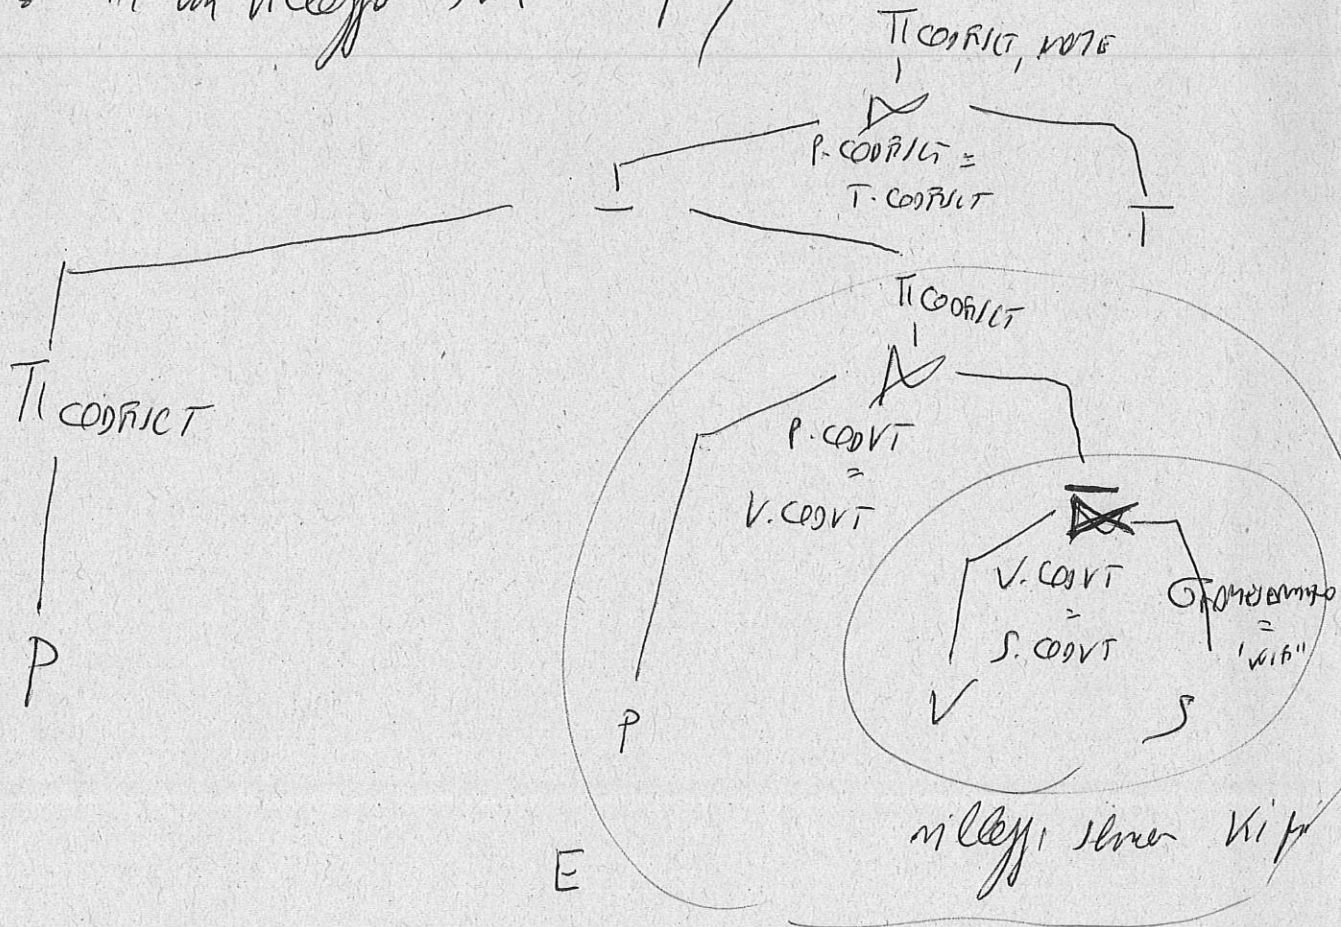 in un villaggio
π CODFISCT, NOTE
P.CODFISCT =
T.CODFISCT
T
π CODFISCT
π CODFISCT
P.CODVT
=
V.CODVT
V.CODVT
=
S.CODVT
σ
=
P
P
V
S
villaggi senza
E